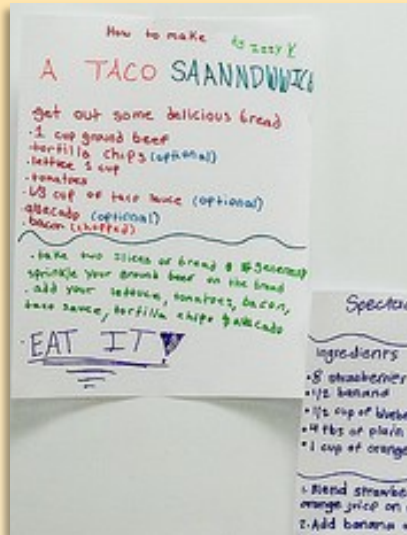 How to make
by Izzy K
A TACO SAANNDWWICH
get out some delicious bread
• 1 cup ground beef
• tortilla chips (optional)
• lettuce 1 cup
• tomatoes
• 1/3 cup of taco sauce (optional)
• avacado (optional)
• bacon (chopped)
• take two slices of bread &
sprinkle your ground beef on the bread
• add your lettuce, tomatoes, bacon,
taco sauce, tortilla chips & avacado
• EAT IT!
Ingredients
• 8 strawberries
• 1/2 banana
• 1/2 cup of
• 4 tbs of plain
• 1 cup of orange
1. Blend
orange juice on
2. Add banana